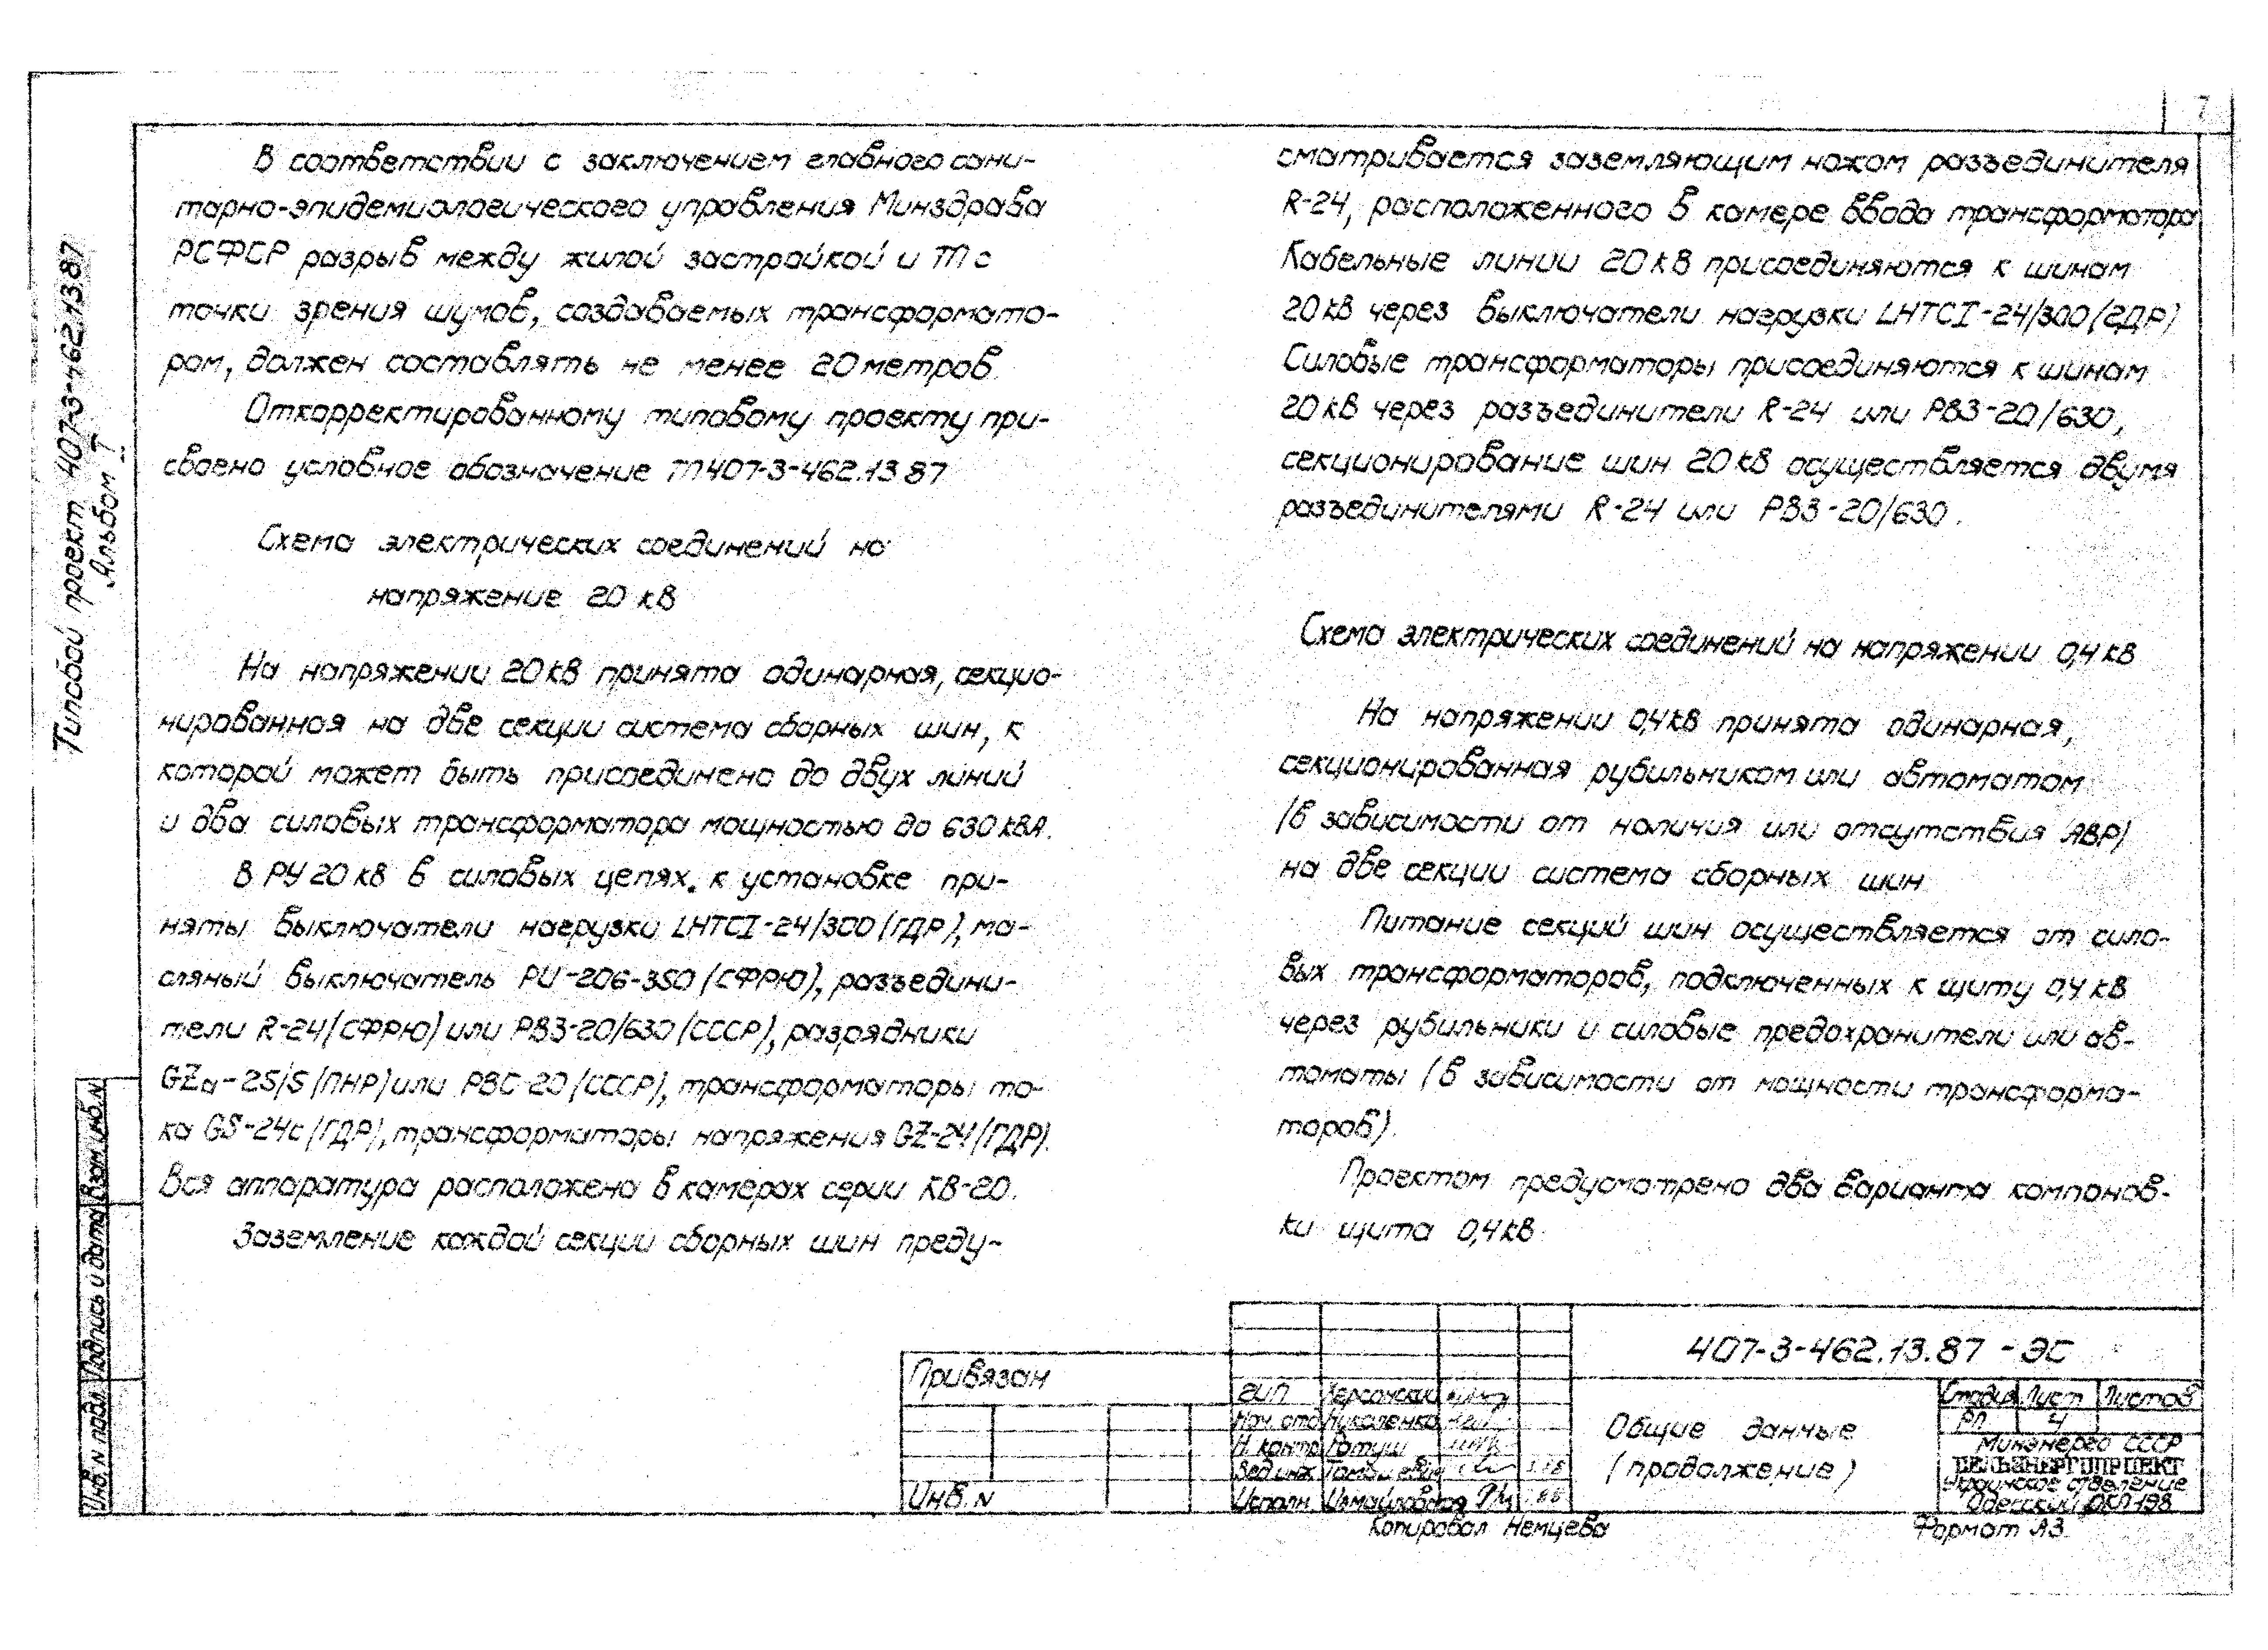 7
Типовой проект 407-3-462.13.87
Альбом I
В соответствии с заключением главного сани-
тарно-эпидемиологического управления Минздрава
РСФСР разрыв между жилой застройкой и ТП с
точки зрения шумов, создаваемых трансформато-
ром, должен составлять не менее 20 метров.
Откорректированному типовому проекту при-
своено условное обозначение ТП 407-3-462.13.87
Схема электрических соединений на
напряжение 20 кВ
На напряжении 20 кВ принята одинарная, секцио-
нированная на две секции система сборных шин, к
которой может быть присоединено до двух линий
и два силовых трансформатора мощностью до 630 кВА.
В РУ 20 кВ в силовых цепях к установке при-
няты выключатели нагрузки LHTCI-24/300 (ГДР), ма-
сляный выключатель PU-206-350 (СФРЮ), разъедини-
тели R-24 (СФРЮ) или РВЗ-20/630 (СССР), разрядники
GZa-25/5 (ПНР) или РВС-20 (СССР), трансформаторы то-
ка GS-24c (ГДР), трансформаторы напряжения GZ-24 (ГДР).
Вся аппаратура расположена в камерах серии КВ-20.
Заземление каждой секции сборных шин преду-
сматривается заземляющим ножом разъединителя
R-24, расположенного в камере ввода трансформатора
Кабельные линии 20 кВ присоединяются к шинам
20 кВ через выключатели нагрузки LHTCI-24/300 (ГДР)
Силовые трансформаторы присоединяются к шинам
20 кВ через разъединители R-24 или РВЗ-20/630,
секционирование шин 20 кВ осуществляется двумя
разъединителями R-24 или РВЗ-20/630.
Схема электрических соединений на напряжении 0,4 кВ
На напряжении 0,4 кВ принята одинарная,
секционированная рубильником или автоматом
(в зависимости от наличия или отсутствия АВР)
на две секции система сборных шин
Питание секций шин осуществляется от сило-
вых трансформаторов, подключенных к щиту 0,4 кВ
через рубильники и силовые предохранители или ав-
томаты (в зависимости от мощности трансформа-
торов).
Проектом предусмотрено два варианта компонов-
ки щита 0,4 кВ
Инв. N подл. Подпись и дата Взам. инв. N
Привязан
Инв. N
ГИП Херсонский
Нач. отд Николенко
Н. контр Гатуш
Вед инж
Исполн. Измайловская
407-3-462.13.87 - ЭС
Общие данные
(продолжение)
Стадия Лист Листов
РП 4
Минэнерго СССР
СЕЛЬЭНЕРГОПРОЕКТ
Украинское отделение
Одесский ОКП 198
Копировал Немцева
Формат А3